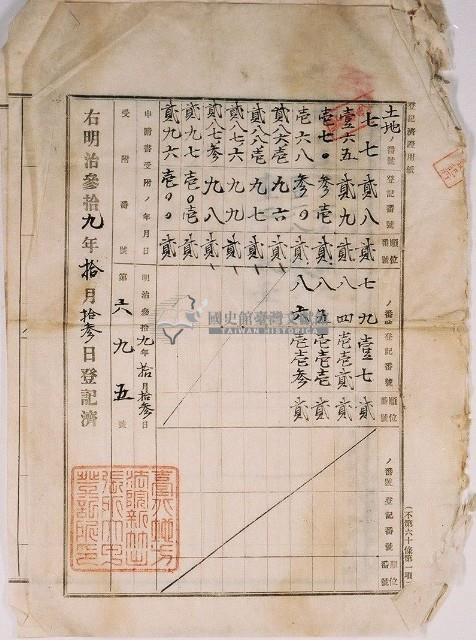 登記濟證用紙
土地ノ番號 登記番號 順位番號
ノ番號 登記番號 順位番號
ノ番號 登記番號 順位番號
七七 貳八 貳
七九 壹七 貳
壹六五 貳九 貳
八四 壹壹貳 貳
壹七〇 參壹 貳
八五 壹壹壹 貳
壹六八 參〇 貳
八六 壹壹參 貳
貳八六壹 九六 貳
貳八八壹 九七 貳
貳八七六 九九 貳
貳八七參 九八 貳
貳九七 壹〇壹 貳
貳九六 壹〇〇 貳
申請書受附ノ年月日 明治參拾九年拾月拾參日
受附番號 第六九五號
右明治參拾九年拾月拾參日登記濟
(不第六十條第一項)
國史館臺灣文獻館
TAIWAN HISTORICA